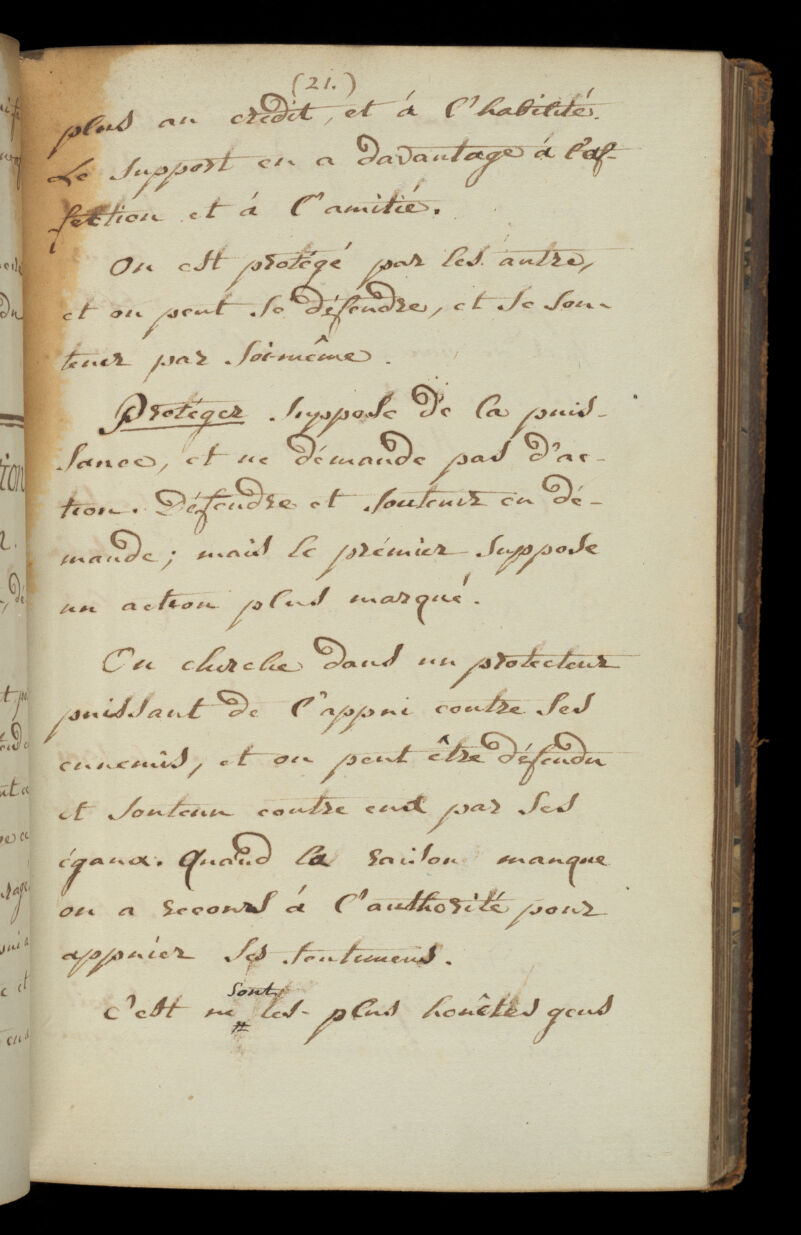 (21.)
plus au crédit, et à l'habilité.
Le support en a davantage à l'af-
fection et à l'amitié.
On est protégé par les autre,
et on peut se défendre, et se sou-
tenir par soi-même.
Protéger suppose de la puis-
sance, et ne démande pas d'ac-
tion. Défendre et soutenir en dé-
mande; mais le prémier suppose
un action plus marqué.
On cherche dans un protecteur
puissant de l'appui contre ses
ennemis, et on peut être défendu
et soutenu contre eux par ses
égaux. Quand la raison manque
on a recours à l'authorité pour
appuier ses sentimens.
sont
C'est ne # les plus honêtes gens